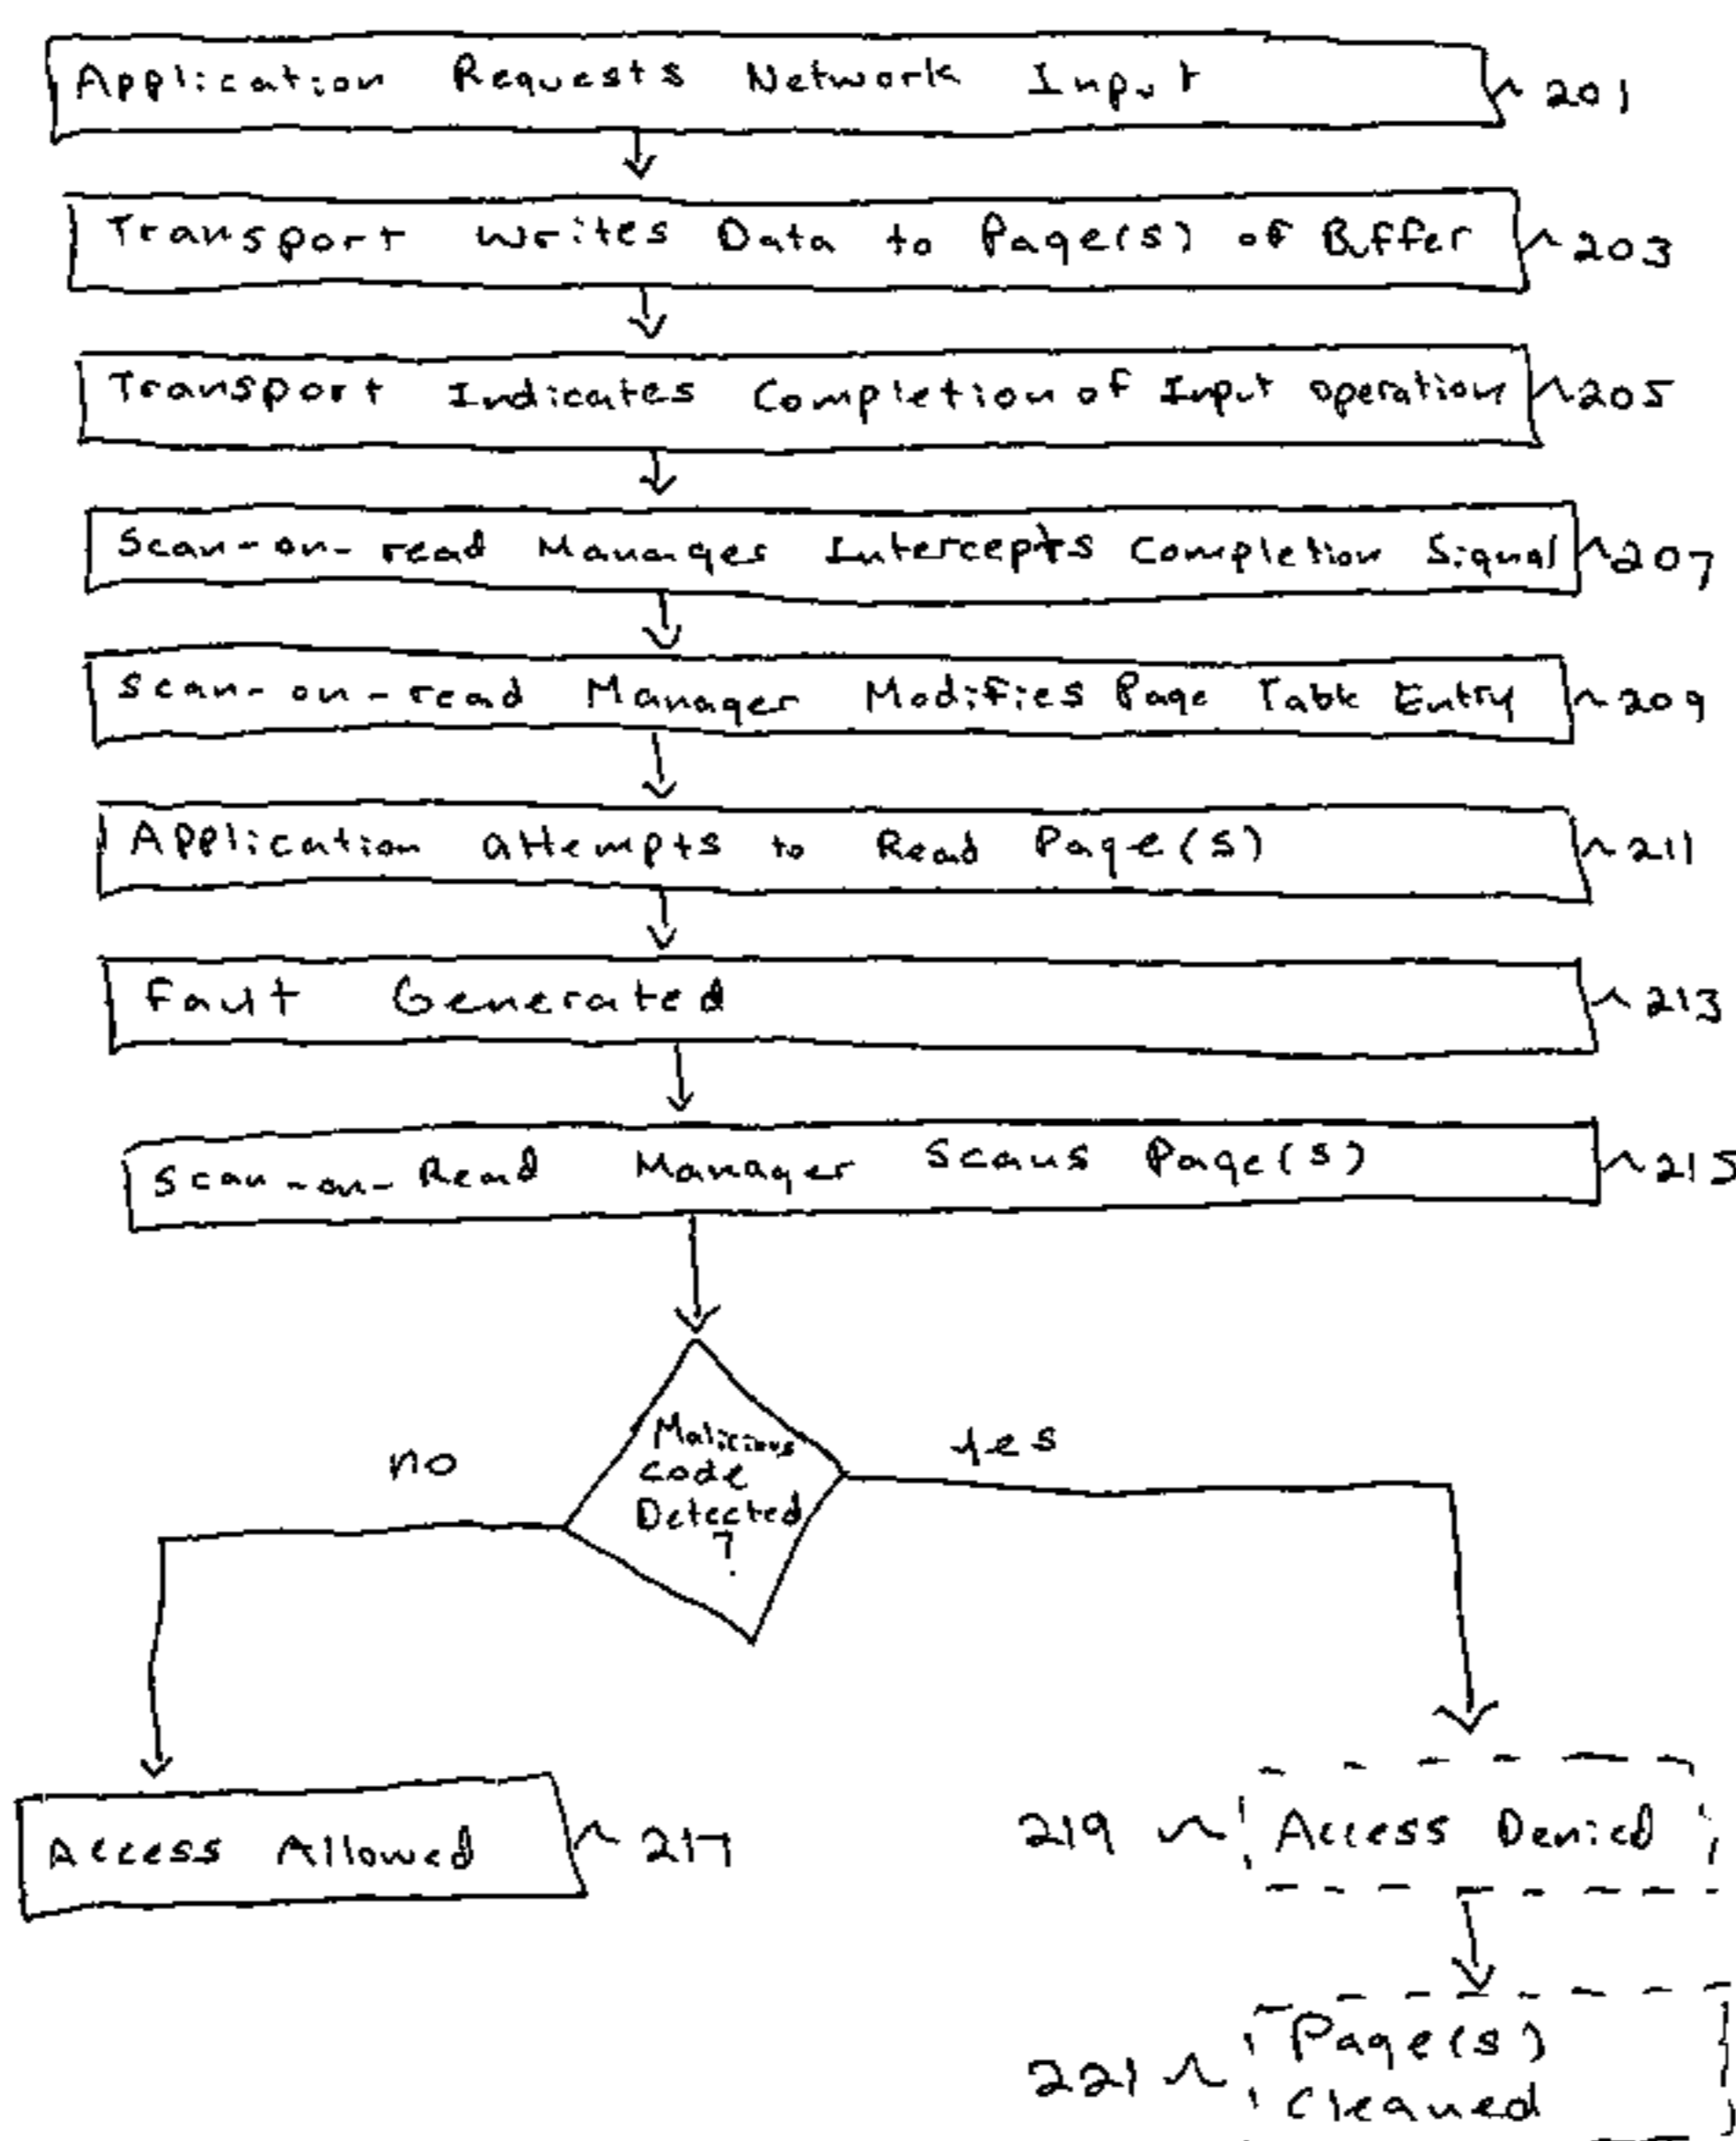 Application Requests Network Input 201
Transport writes Data to Page(s) of Buffer 203
Transport Indicates Completion of Input operation 205
Scan-on-read Manager Intercepts Completion Signal 207
Scan-on-read Manager Modifies Page Table Entry 209
Application attempts to Read Page(s) 211
Fault Generated 213
Scan-on-Read Manager Scans Page(s) 215
Malicious
Code
Detected
?
no
yes
Access Allowed 217
219 Access Denied
221 Page(s)
Cleaned